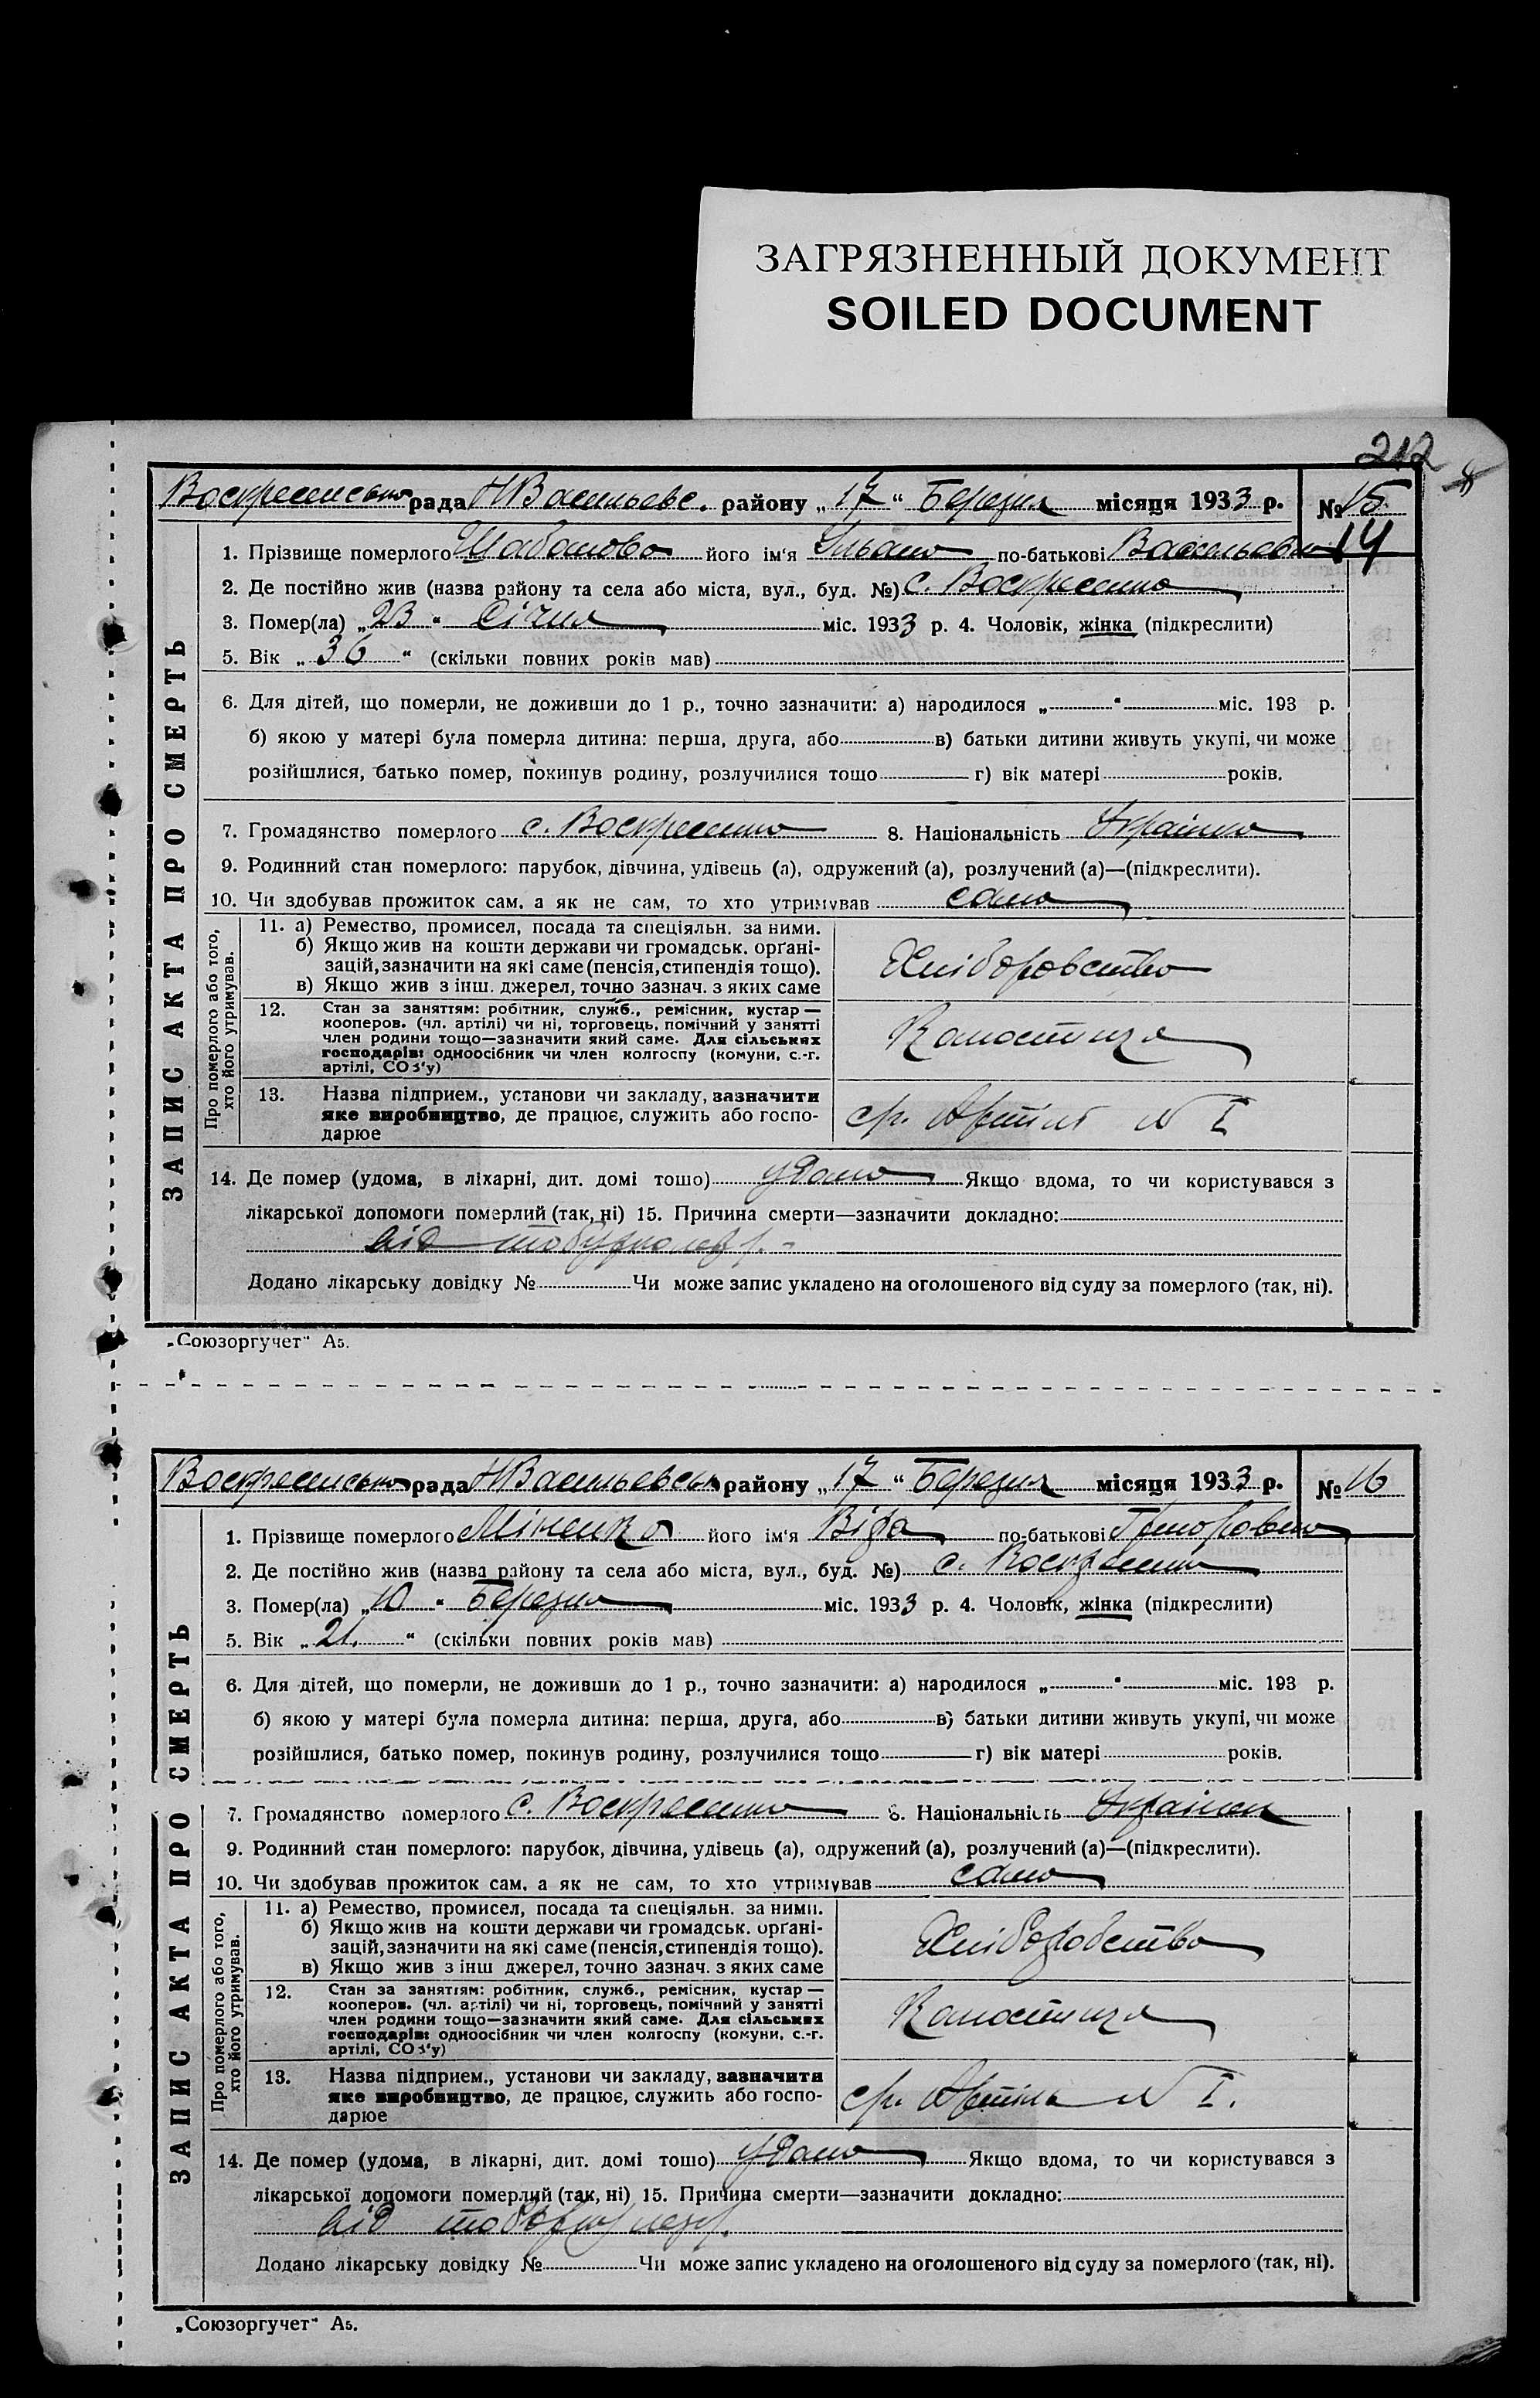 ЗАГРЯЗНЕННЫЙ ДОКУМЕНТ
SOILED DOCUMENT
212
рада НВасильевс. району „17“ Березня місяця 1933 р. № 15
14
1. Прізвище померлого його ім'я по-батькові
2. Де постійно жив (назва району та села або міста, вул., буд. №) с.
3. Помер(ла) „23“ Січня міс. 1933 р. 4. Чоловік, жінка (підкреслити)
5. Вік „36“ (скільки повних років мав)
6. Для дітей, що померли, не доживши до 1 р., точно зазначити: а) народилося „ “ міс. 193 р.
б) якою у матері була померла дитина: перша, друга, або в) батьки дитини живуть укупі, чи може
розійшлися, батько помер, покинув родину, розлучилися тощо г) вік матері років.
7. Громадянство померлого с. 8. Національність
9. Родинний стан померлого: парубок, дівчина, удівець (а), одружений (а), розлучений (а)—(підкреслити).
10. Чи здобував прожиток сам, а як не сам, то хто утримував сама
ЗАПИС АКТА ПРО СМЕРТЬ
Про померлого або того,
хто його утримував.
11. а) Ремество, промисел, посада та спеціяльн. за ними.
б) Якщо жив на кошти держави чи громадськ. орґані-
зацій, зазначити на які саме (пенсія, стипендія тощо).
в) Якщо жив з інш. джерел, точно зазнач. з яких саме
Хліборобство
12. Стан за заняттям: робітник, служб., ремісник, кустар—
кооперов. (чл. артілі) чи ні, торговець, помічний у занятті
член родини тощо—зазначити який саме. Для сільських
господарів: одноосібник чи член колгоспу (комуни, с.-г.
артілі, СОЗ'у)
13. Назва підприєм., установи чи закладу, зазначити
яке виробництво, де працює, служить або госпо-
дарює
Артіль № I
14. Де помер (удома, в лікарні, дит. домі тощо) удома Якщо вдома, то чи користувався з
лікарської допомоги померлий (так, ні) 15. Причина смерти—зазначити докладно:
від
Додано лікарську довідку № Чи може запис укладено на оголошеного від суду за померлого (так, ні).
„Союзоргучет“ А5.
рада НВасильевськ району „17“ Березня місяця 1933 р. № 16
1. Прізвище померлого Міненко його ім'я Віра по-батькові
2. Де постійно жив (назва району та села або міста, вул., буд. №) с.
3. Помер(ла) „10“ Березня міс. 1933 р. 4. Чоловік, жінка (підкреслити)
5. Вік „21.“ (скільки повних років мав)
6. Для дітей, що померли, не доживши до 1 р., точно зазначити: а) народилося „ “ міс. 193 р.
б) якою у матері була померла дитина: перша, друга, або в) батьки дитини живуть укупі, чи може
розійшлися, батько помер, покинув родину, розлучилися тощо г) вік матері років.
7. Громадянство померлого с. 8. Національність
9. Родинний стан померлого: парубок, дівчина, удівець (а), одружений (а), розлучений (а)—(підкреслити).
10. Чи здобував прожиток сам, а як не сам, то хто утримував сама
ЗАПИС АКТА ПРО СМЕРТЬ
Про померлого або того,
хто його утримував.
11. а) Ремество, промисел, посада та спеціяльн. за ними.
б) Якщо жив на кошти держави чи громадськ. орґані-
зацій, зазначити на які саме (пенсія, стипендія тощо).
в) Якщо жив з інш джерел, точно зазнач. з яких саме
Хліборобство
12. Стан за заняттям: робітник, служб., ремісник, кустар—
кооперов. (чл. артілі) чи ні, торговець, помічний у занятті
член родини тощо—зазначити який саме. Для сільських
господарів: одноосібник чи член колгоспу (комуни, с.-г.
артілі, СОЗ'у)
13. Назва підприєм., установи чи закладу, зазначити
яке виробництво, де працює, служить або госпо-
дарює
Артіль № I.
14. Де помер (удома, в лікарні, дит. домі тощо) удома Якщо вдома, то чи користувався з
лікарської допомоги померлий (так, ні) 15. Причина смерти—зазначити докладно:
від
Додано лікарську довідку № Чи може запис укладено на оголошеного від суду за померлого (так, ні).
„Союзоргучет“ А5.